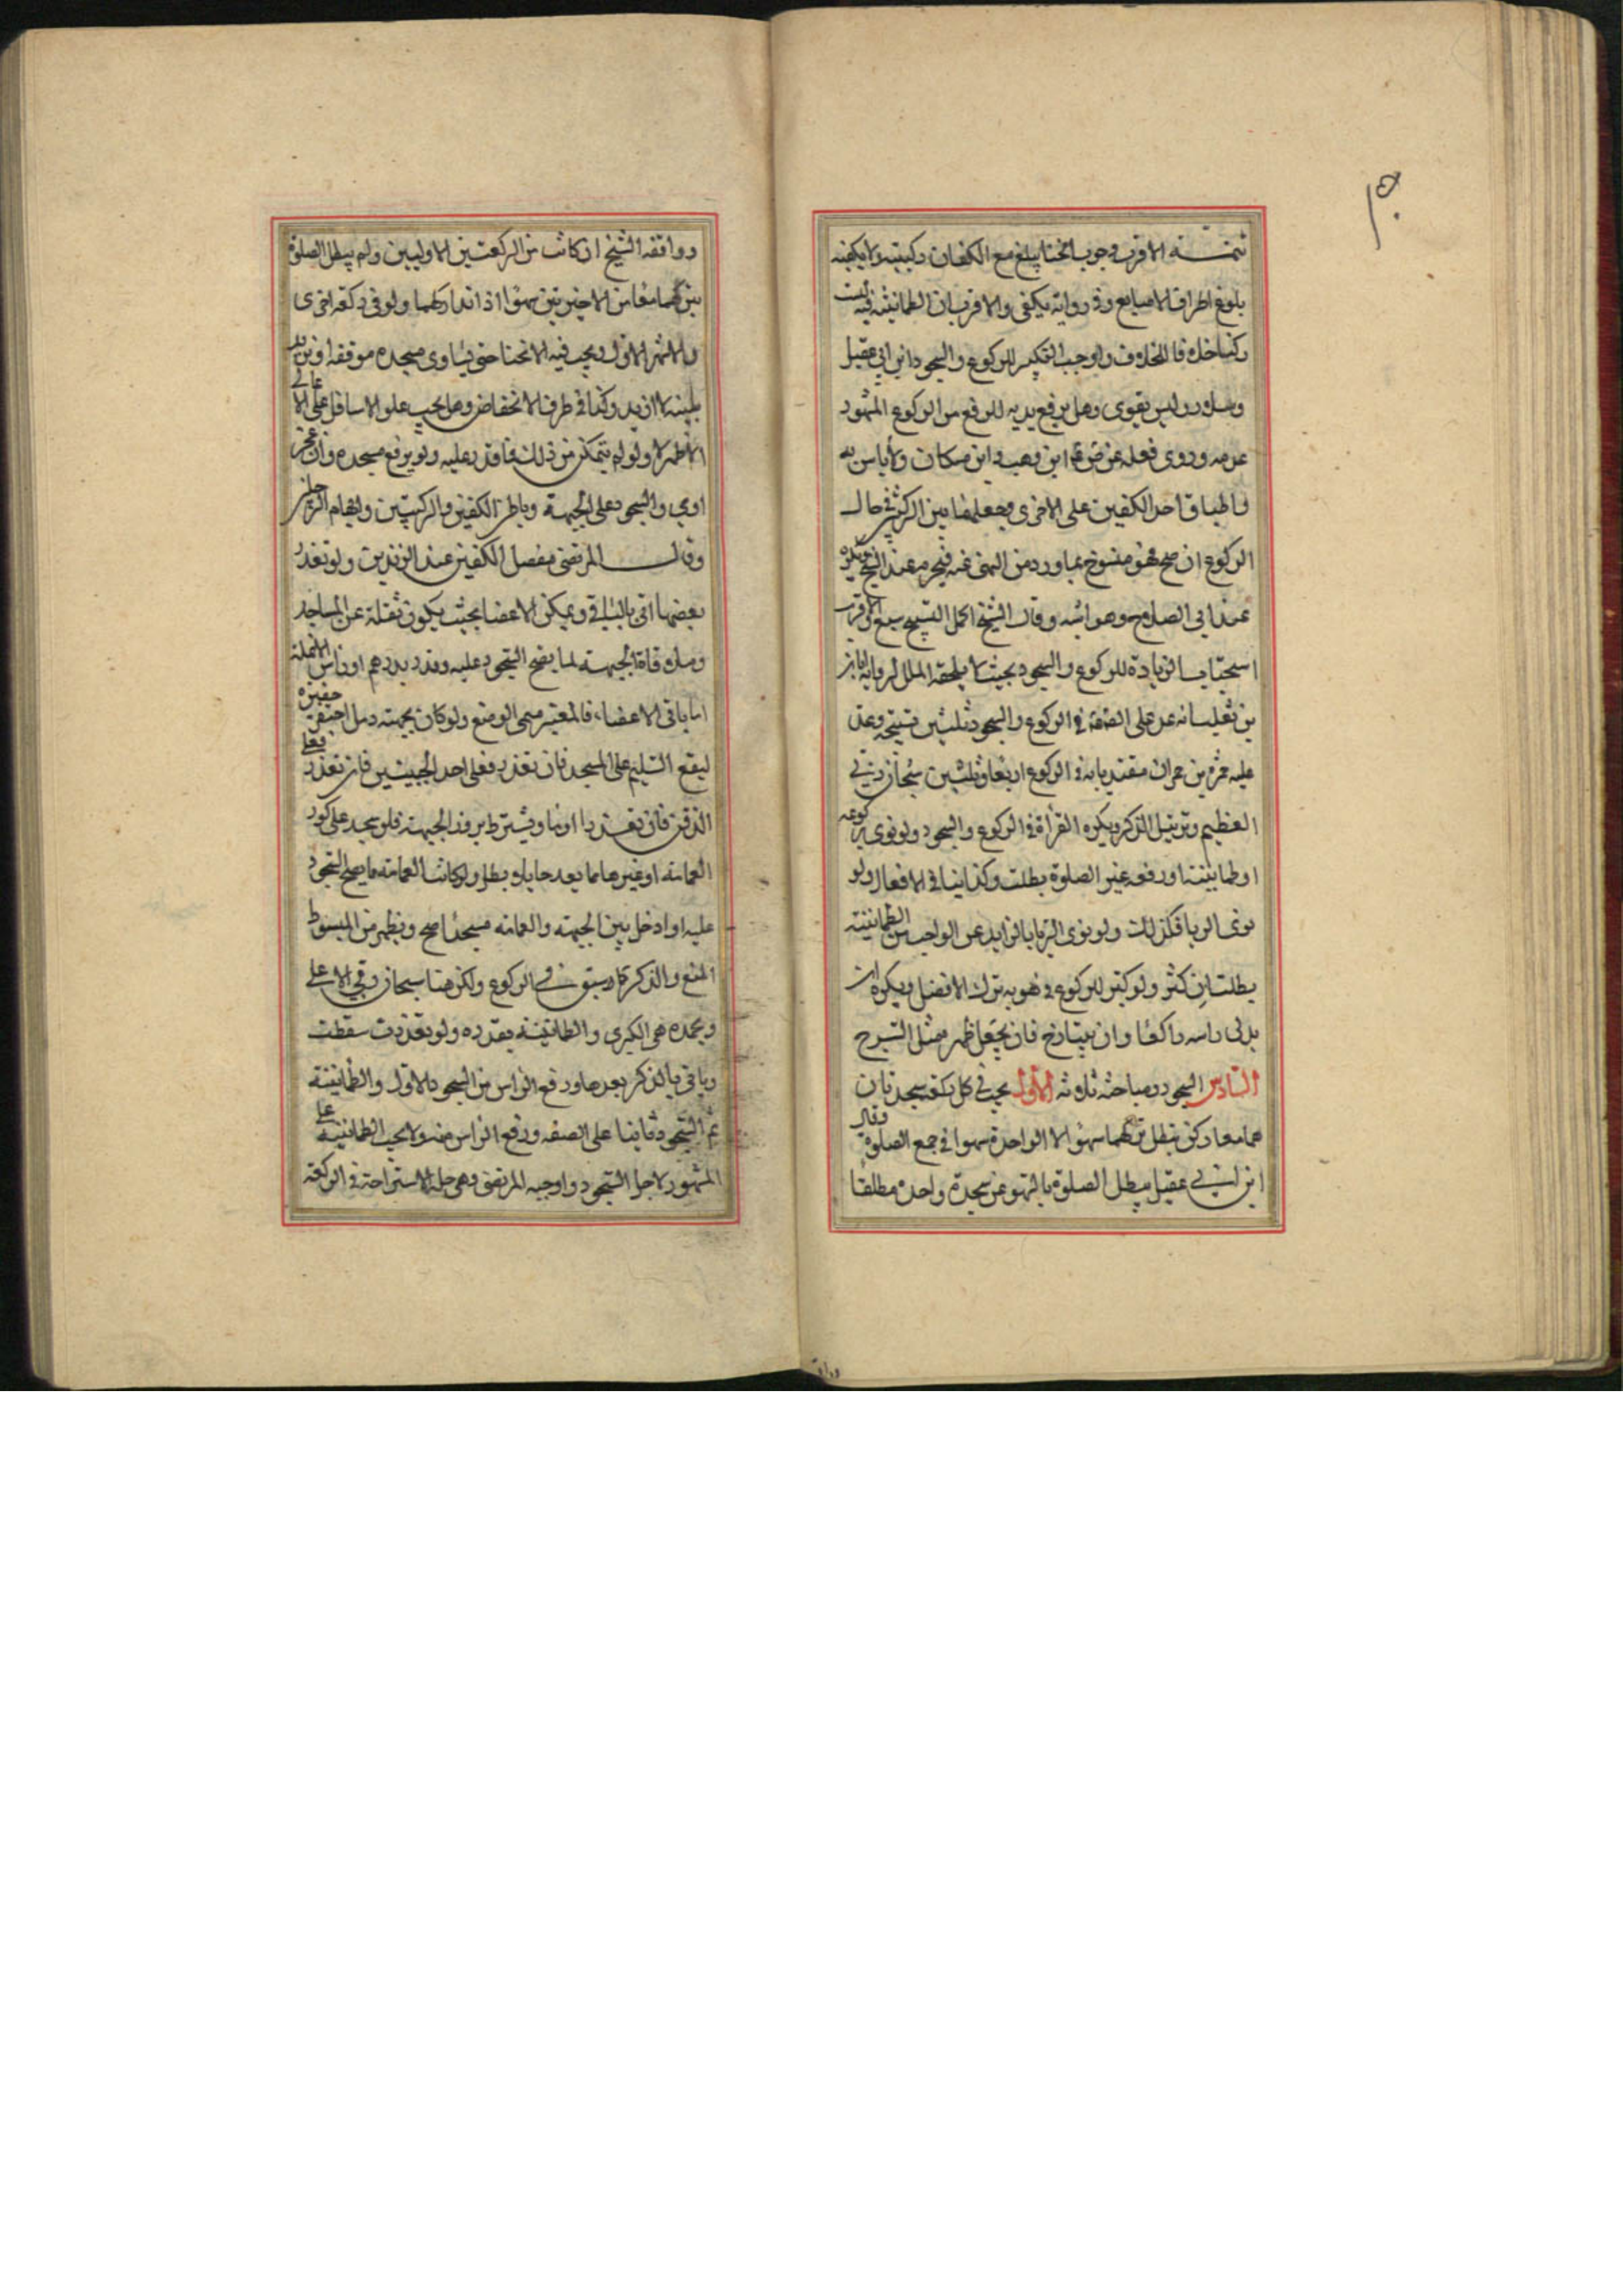 تتمة الاقرب وجوب انحنا يبلغ مع الكفان ركبتيه ولا يكفيه
بلوغ اطراف الاصابع وفي رواية يكفي والاقرب ان الطمانينة فيه ليست
ركنا خلافا للخلاف واوجب التكبير للركوع والسجود ابن ابي عقيل
وسلار وليس بقوي وهل يرفع يديه للرفع من الركوع المشهور
عدمه وروي فعله ابن وهب وابن مسكان ولا باس به
واطباق احد الكفين على الاخرى وجعلهما بين الركبتين في حال
الركوع ان صح فهو منسوخ بما ورد من النهي عنه فيحرم عند الشيخ ويكره
عند ابي الصلاح وهو اشبه وقال الشيخ اكمل التسبيح سبع والاقرب
استحباب الزيادة للركوع والسجود بحيث لا يلحقه الملل لرواية ابان
بن تغلب انه عد على الصادق في الركوع والسجود ثلثين تسبيحة وعد
عليه حمزة بن حمران مقتديا به في الركوع اربعا وثلثين سبحان ربي
العظيم وترتيل الذكر ويكره القراة في الركوع والسجود ولو نوى بركوعه
او طمانينته او رفعه غير الصلوة بطلت وكذا باقي الافعال ولو
نوى الريا فكذلك ولو نوى الريا بالزايد عن الواجب من الطمانينة
بطلت ان كثر ولو كبر للركوع في هويه ترك الافضل ويكره ان
يدلي راسه راكعا وان يتبازخ فان يجعل ظهره مثل السرج
السادس السجود ومباحثه ثلاثة الاول يجب في كل ركعة سجدتان
هما معا ركن تبطل بتركهما سهوا لا الواحدة سهوا في جميع الصلوة وقال
ابن ابي عقيل يبطل الصلوة بالسهو عن سجدة واحدة مطلقا
ووافقه الشيخ ان كانت من الركعتين الاوليين ولم يبطل الصلوة
بتركهما معا من الاخيرتين سهوا اذا تداركهما ولو في ركعة اخرى
والاشهر الاول ويجب فيه الانحنا حتى يساوي مسجده موقفه او يزيد
بلبنة لا ازيد وكذا في طرف الانخفاض وهل يجب علو الاسافل على الاعالي
الاظهر لا ولو لم يتمكن من ذلك فما قدر عليه ولو برفع مسجده وان عجز
اومي والسجود على الجبهة وباطن الكفين والركبتين وابهام الرجلين
وقال المرتضى مفصل الكفين عند الزندين ولو تعذر
بعضها اتى بالباقي ويمكن الاعضا بحيث يكون ثقله عن المساجد
وملاقاة الجبهة لما يصح السجود عليه وقدر بدرهم او راس الانملة
اما باقي الاعضا، فالمعتبر مسمى الوضع ولو كان بجبهته دمل احتفر حفيرة
ليقع السليم على المسجد فان تعذر فعلى احد الجبينين فان تعذر فعلى
الذقن فان تعذر اوما ويشترط بروز الجبهة فلو سجد على كور
العمامة او غيرها مما يعد حايلا بطل ولو كانت العمامة مما يصح السجود
عليه او ادخل بين الجبهة والعمامة مسجدا صح ويظهر من المبسوط
المنع والذكر كما سبق في الركوع ولكن هنا سبحان ربي الاعلى
وبحمده هي الكبرى والطمانينة بقدره ولو تعذرت سقطت
وياتي بالذكر بعدها ورفع الراس من السجود الاول والطمانينة
ثم السجود ثانيا على الصفه ورفع الراس منه ولا يجب الطمانينة على
المشهور لاجل السجود واوجبه المرتضى وهي جلسة الاستراحة في الركعة